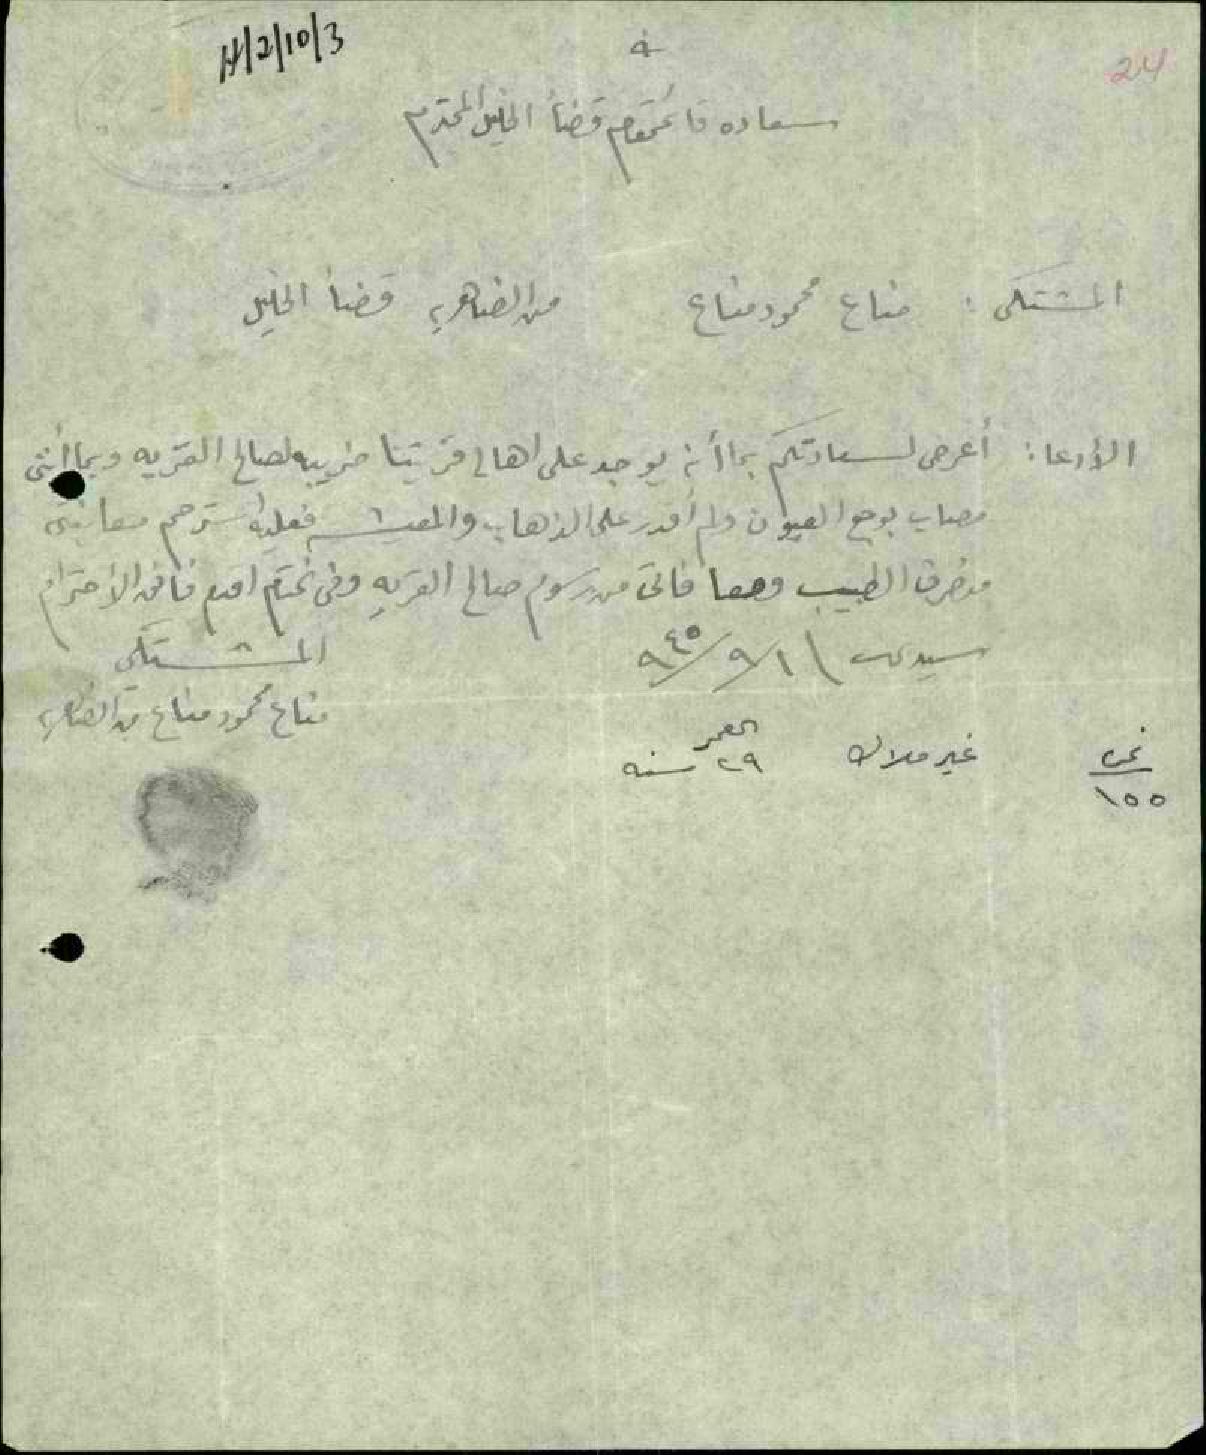 H/2/10/3
24
سعاده قائمقام قضاأ الخليل المحترم
المشتكى: مناع محمود مناع من الضاهريه قضاأ الخليل
الأدعا: أعرض لسعادتكم بما أنه يوجد على اهالي قريتنا ضريبه لصالح القريه وبما أنني
مصاب بوجع العيون ولم أقدر على الذهاب والمعيشه فعليه أسترحم معاينتي
من طرف الطبيب ومعافاتي من رسوم صالح القريه وفي الختام اقدم فائق الأحترام
سيدي ١١/٩/٩٤٥
المشتكي
مناع محمود مناع من الضاهريه
نمره ١٥٥
غير ملاك
العمر ٢٩ سنه